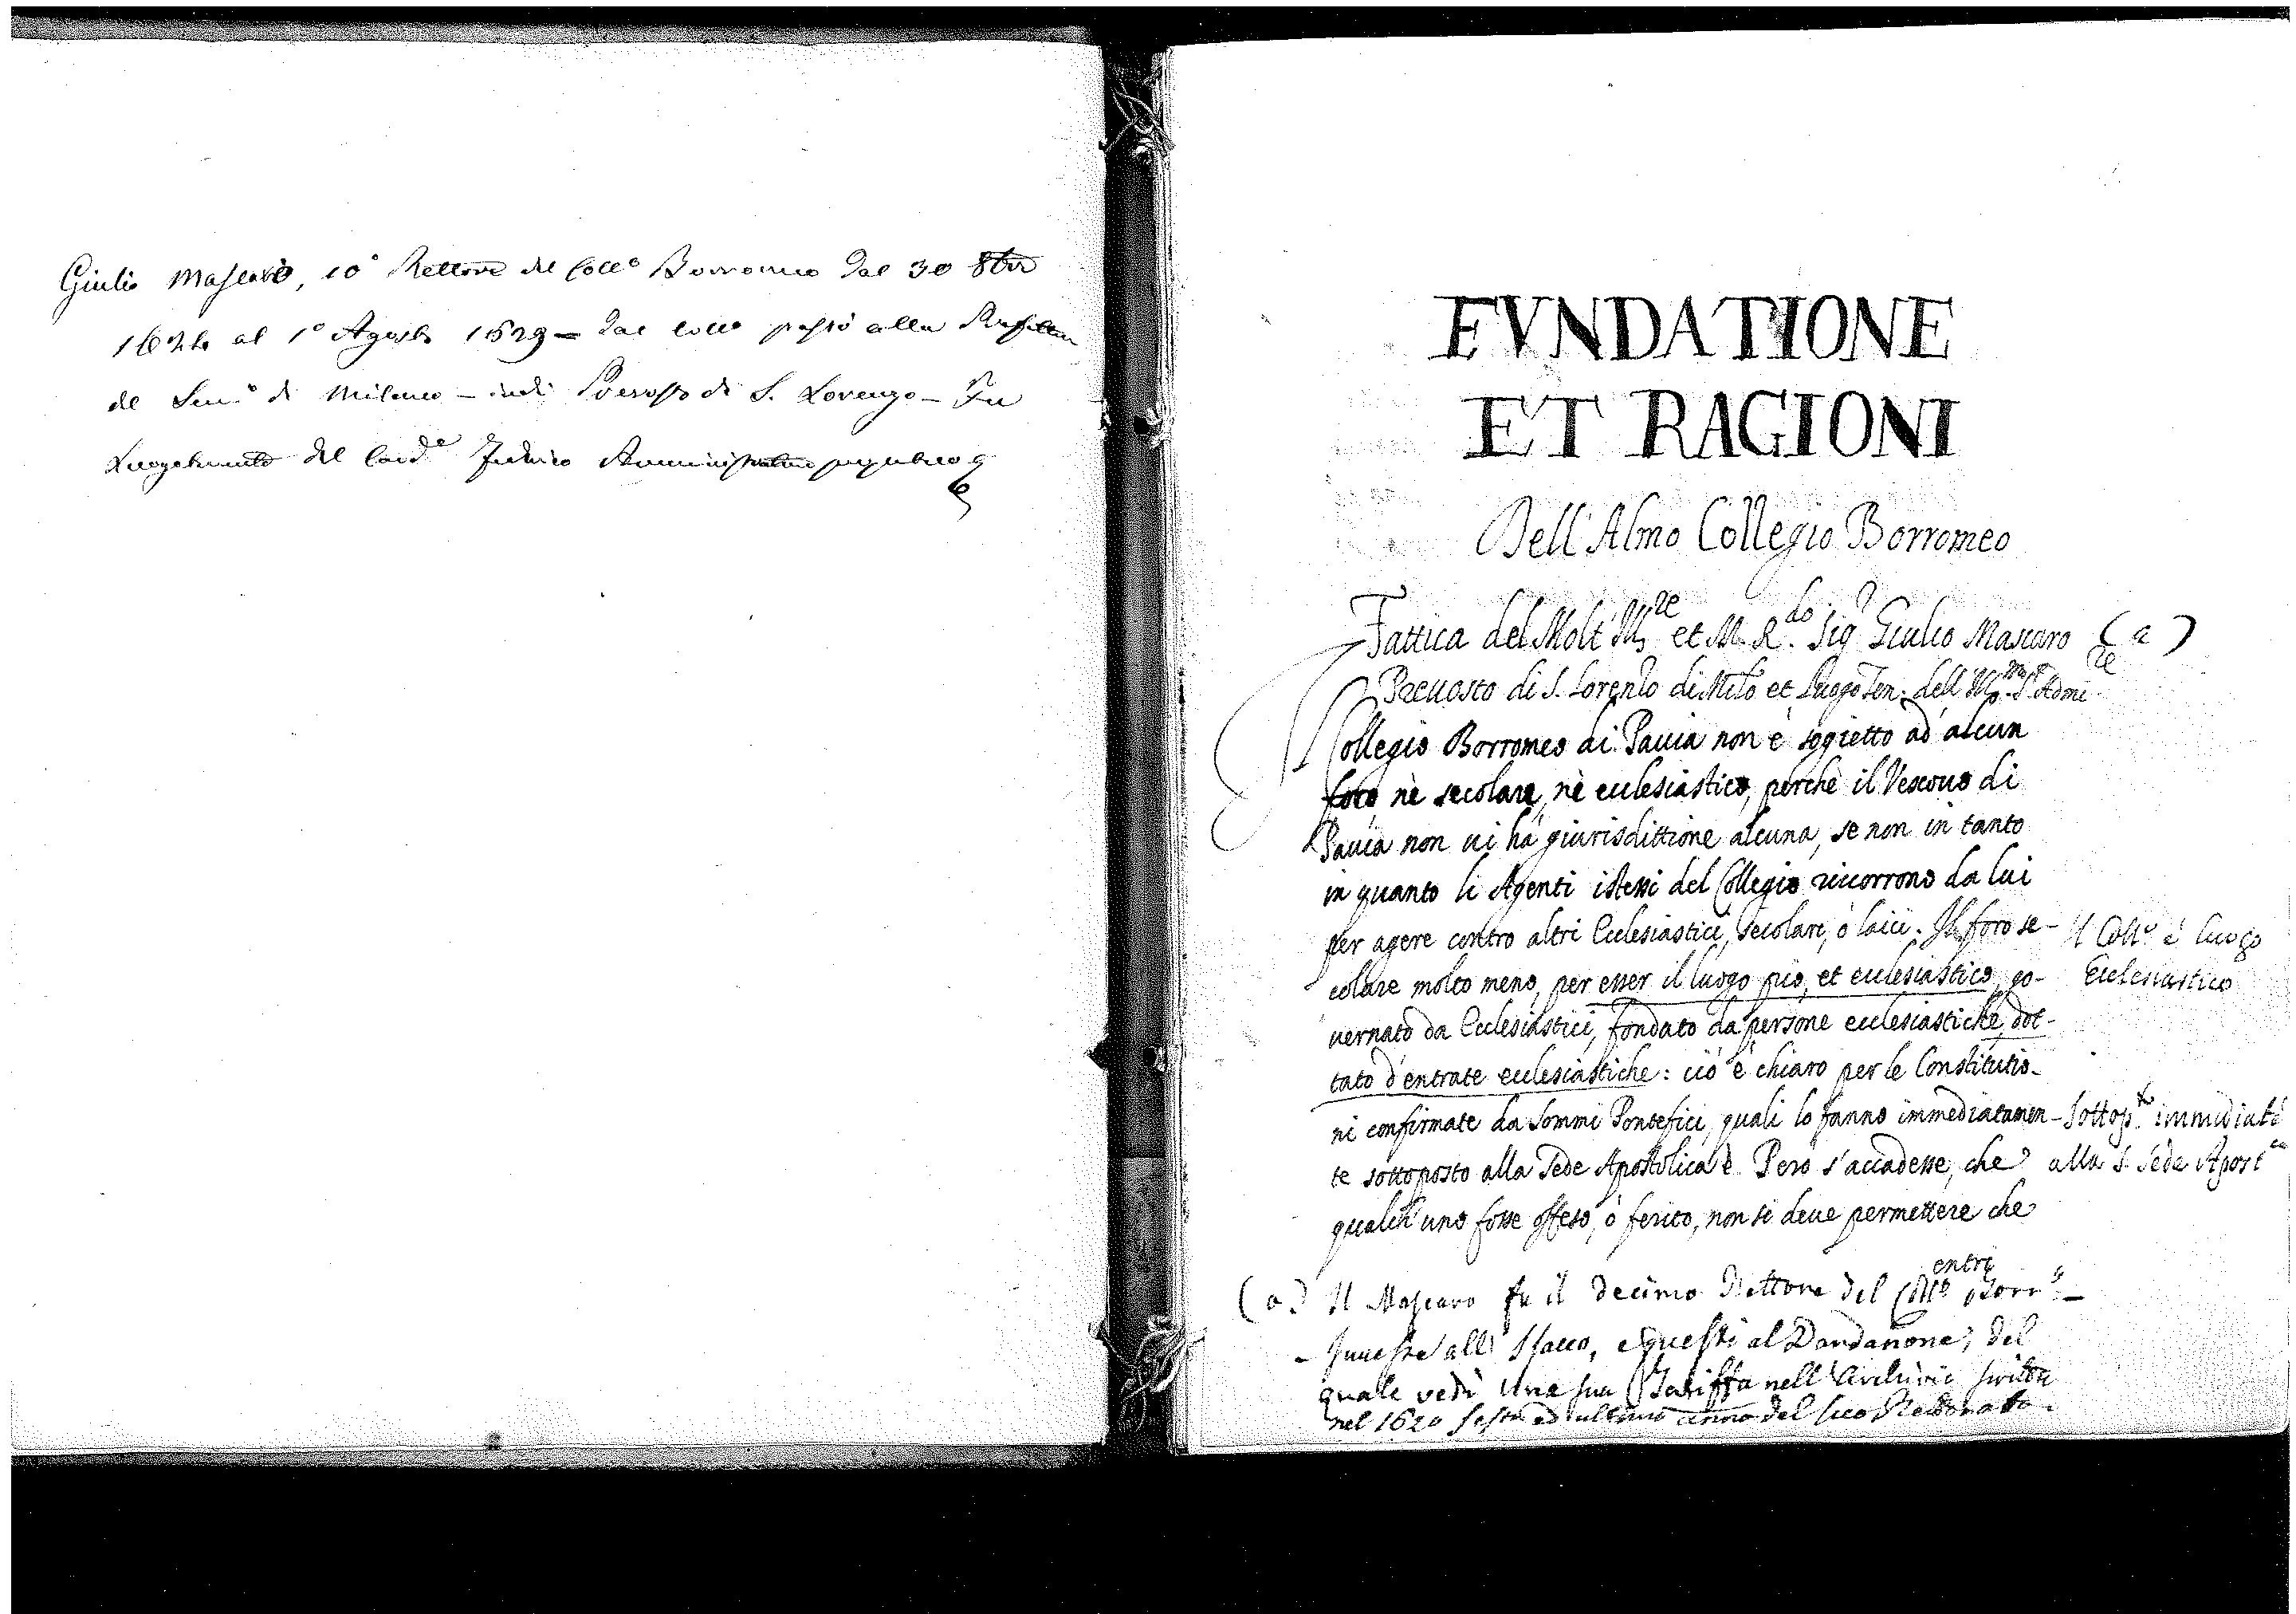 Giulio Mascaro, 10° Rettore del Coll° Borromeo dal 30 8bre
1624 al 1° Agosto 1629 – dal Coll° passò alla
del Sem.° di Milano – indi Prevosto di S. Lorenzo – Fu
Luogotenente del Card.e Federico
FVNDATIONE
ET RAGIONI
Dell'Almo Collegio Borromeo
Fattica del Molt' Ill.re et M. R.do Sig.r Giulio Mascaro (a)
Preuosto di S. Lorenzo di Mil.o et LuogoTen. dell' Ill.mo S. Admi.re
Collegio Borromeo di Pauia non è sogietto ad alcun
foro, nè secolare, nè ecclesiastico, perchè il Vescouo di
Pauia non ui hà giurisdittione alcuna, se non in tanto
in quanto li Agenti istessi del Collegio ricorrono da lui
per agere contro altri Ecclesiastici, secolari, ò laici. Il foro se-
colare molto meno, per esser il luogo pio, et ecclesiastico, go-
uernato da Ecclesiastici, fondato da persone ecclesiastiche, dot-
tato d'entrate ecclesiastiche: ciò è chiaro per le Constitutio-
ni confirmate da Sommi Pontefici, quali lo fanno immediatamen-
te sottoposto alla Sede Apostolica è Però s'accadesse, che
qualch' uno fosse offeso, ò ferito, non si deue permettere che
Il Coll.° è luogo
Ecclesiastico
Sottop.to immediate
alla S. Sede Apost.ca
(a) Il Mascaro fu il decimo Rettore del Coll.°, entrò Borr.°
quale vedi una sua nell'Archivio scritta
nel 1620 sesto ed ultimo anno del suo Rettorato.